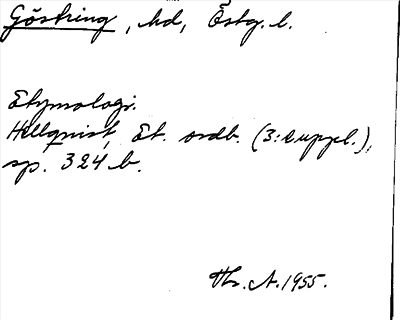 Göstring, hd, Östg. l.
Etymologi.
Hellquist, Et. ordb. (3: suppl.),
sp. 324 b.
Hr. A. 1955.